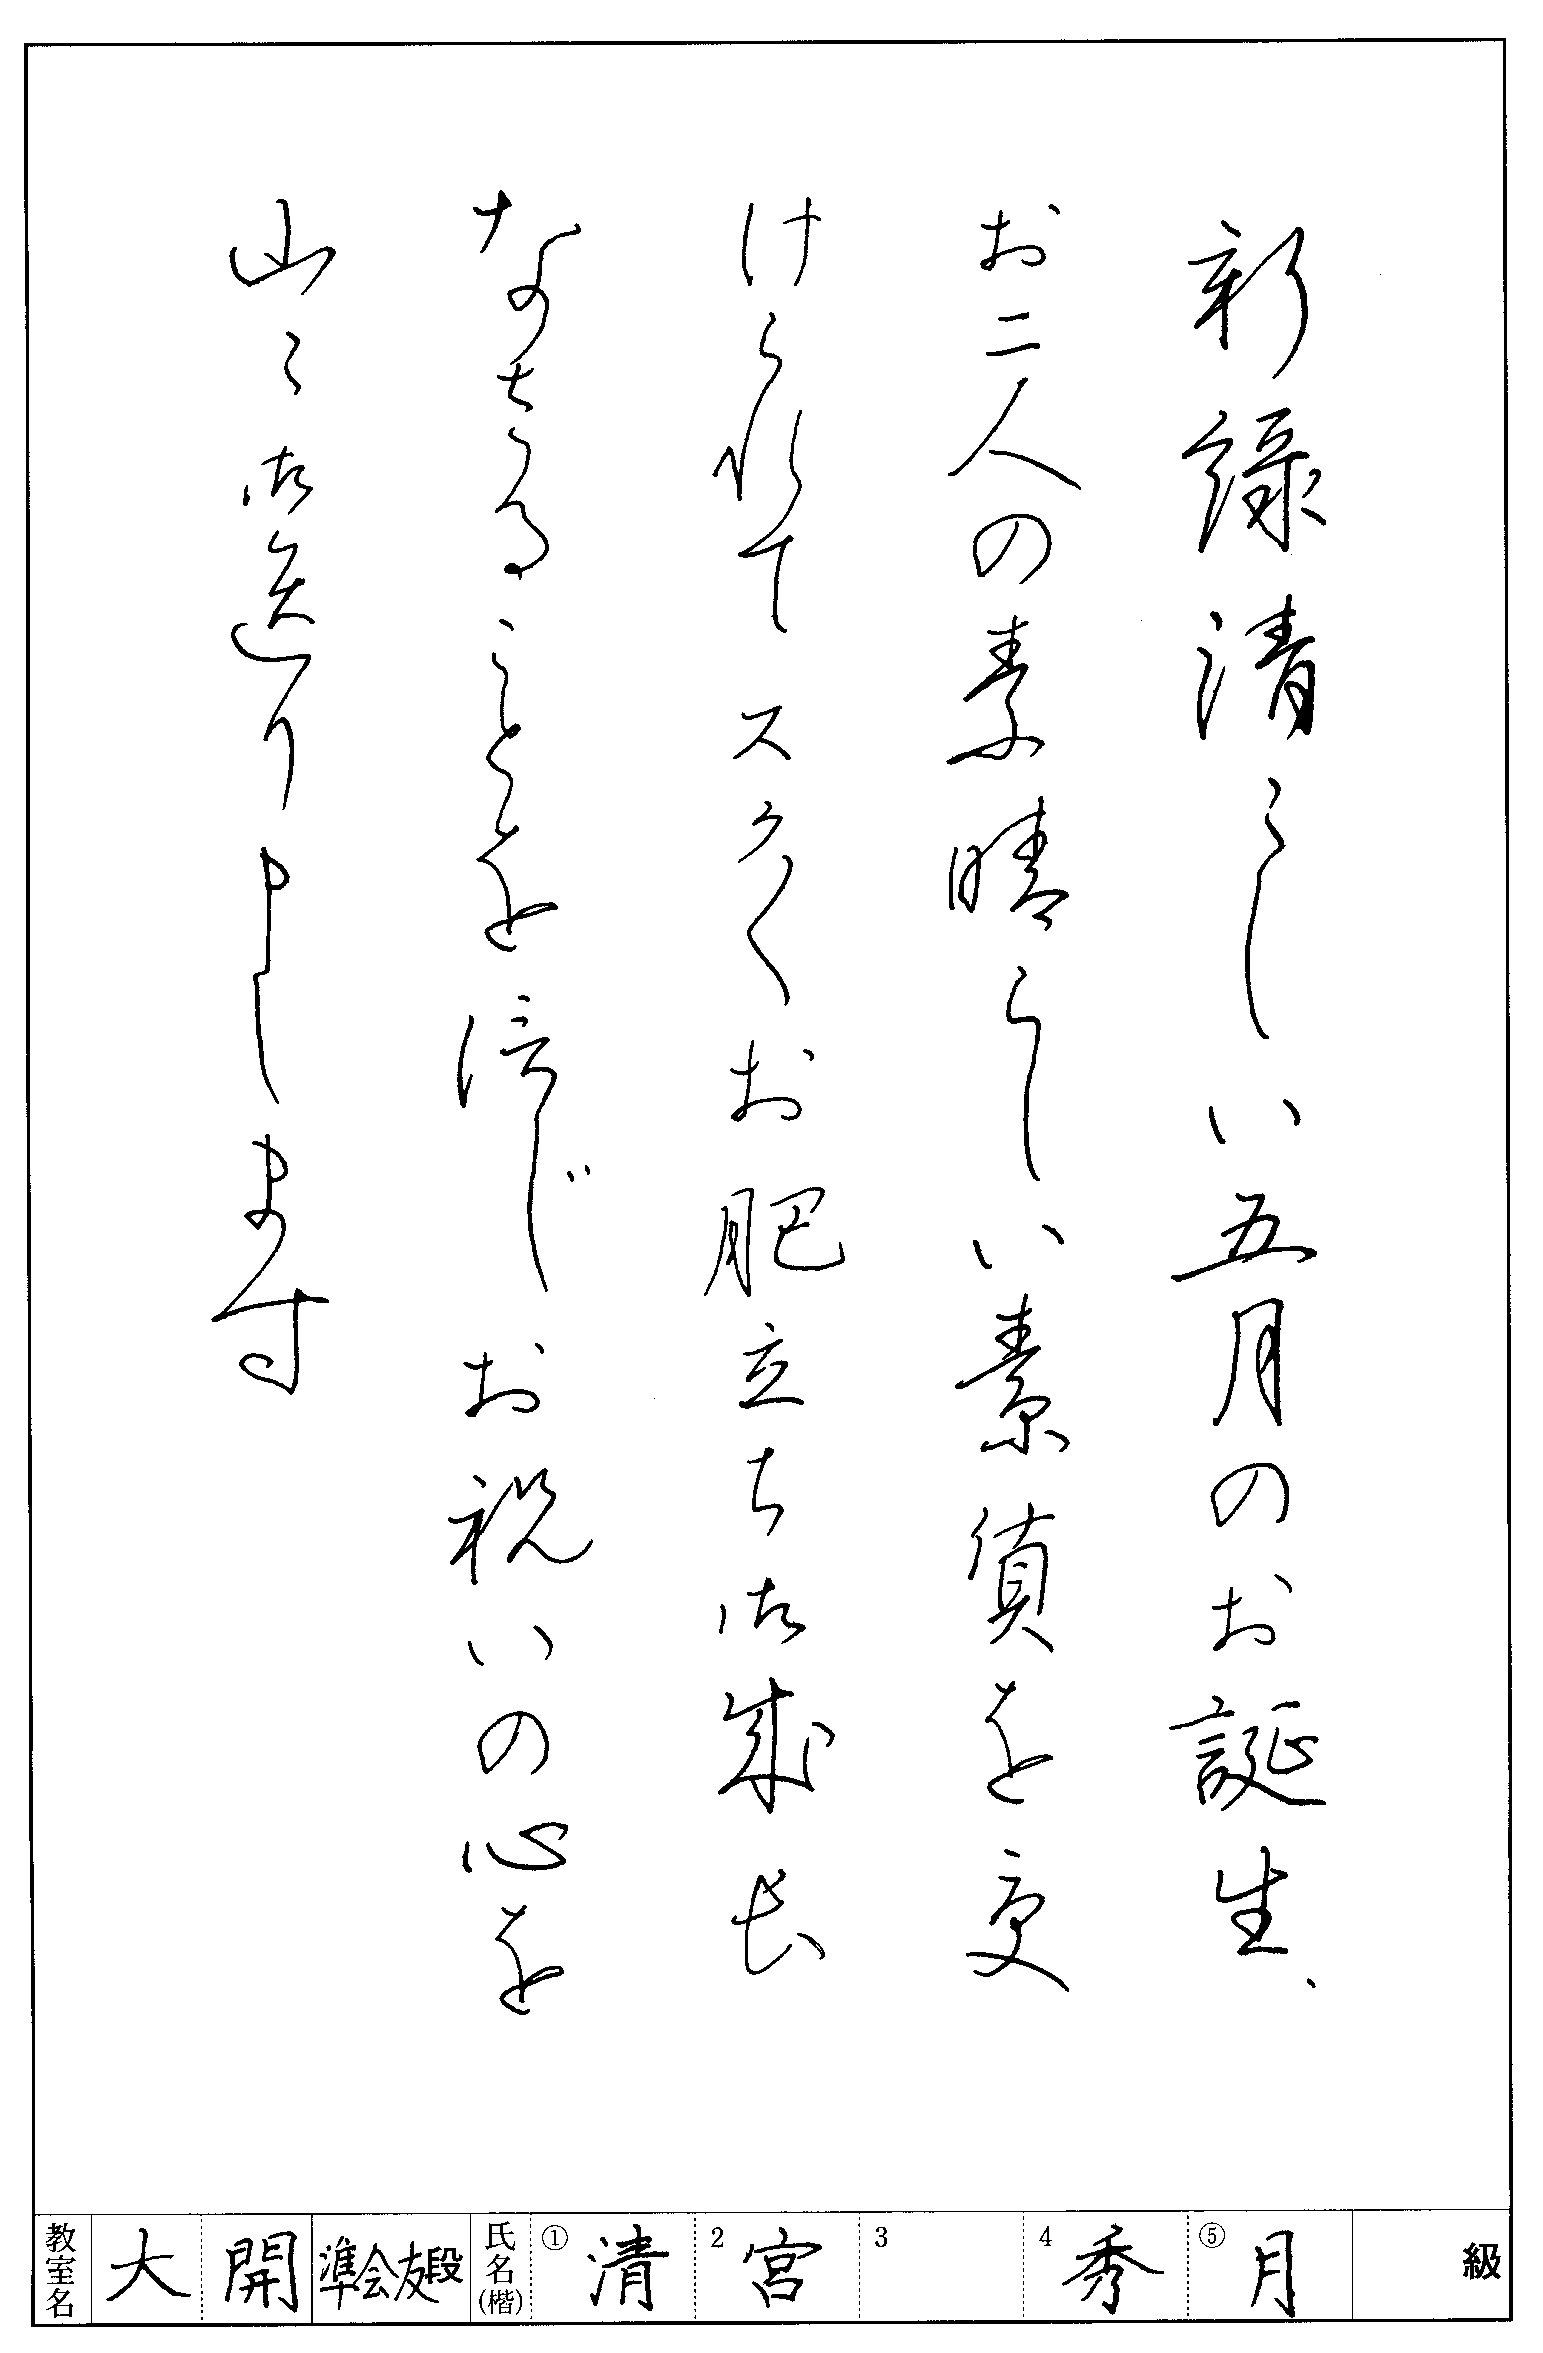 新緑清々しい五月のお誕生、
お二人の素晴らしい素質を受
けられてスクスクお肥立ち御成長
なさることを信じお祝いの心を
山々御送り申し上げます
教室名 大開 準会友段 氏名(楷) ① 清 2 宮 3 4 秀 ⑤ 月 級